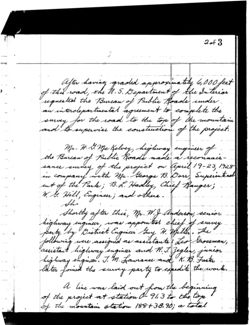 2 of 3
After having graded approximately 6,000 feet
of the road, the U.S. Department of the Interior
requested the Bureau of Public Roads under
an interdepartmental agreement to complete the
survey for the road to the top of the mountain
and to supervise the construction of the project.
Mr. W. G. McKelvey, highway engineer of
the Bureau of Public Roads made a reconnais-
sance survey of the project on April 19-23, 1928
in company with Mr. George B. Dorr, Superintend-
ent of the Park; B. L. Hadley, Chief Ranger;
W. G. Hill, Engineer; and others.
Shortly after this, Mr. W. J. Anderson, senior
highway engineer, was appointed chief of survey
party by District Engineer. The
following were assigned as assistants:
assistant highway engineer and junior
highway engineer. T. M. and
later joined the survey party to expedite the work.
A line was laid out from the beginning
of the project at station 0+96.3 to the top
of the mountain station 189+38.70, a total